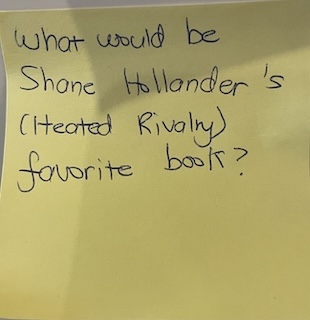 What would be
Shane Hollander's
(Heated Rivalry)
favorite book?